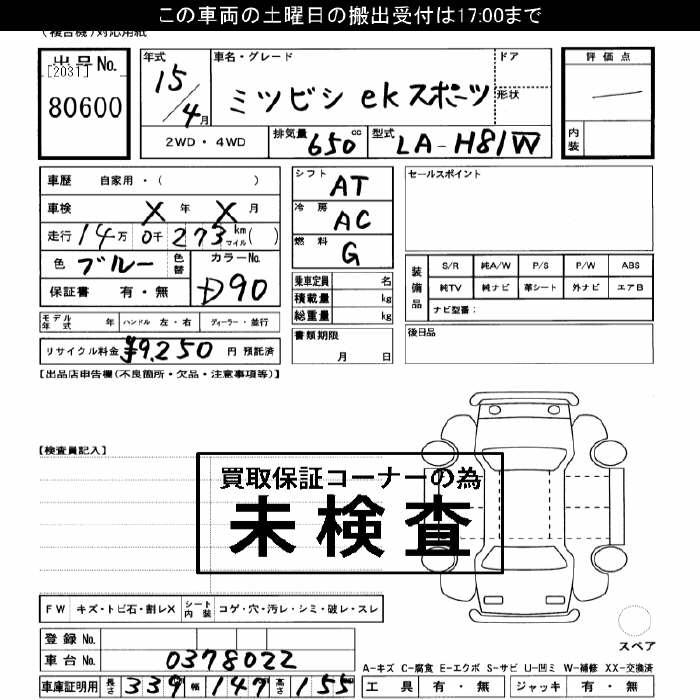 この車両の土曜日の搬出受付は17:00まで
(複合機)対応用紙
出品No.
[2031]
80600
年式
15/4月
車名・グレード
ミツビシ ekスポーツ
ドア
形状
評価点
内装
2WD・4WD
排気量 650cc
型式 LA-H81W
車歴 自家用・( )
車検 X年 X月
走行 14万0千273km マイル( )
色 ブルー
色替
カラーNo.
D90
保証書 有・無
シフト AT
冷房 AC
燃料 G
乗車定員 名
積載量 kg
総重量 kg
書類期限
月 日
セールスポイント
装備品
S/R 純A/W P/S P/W ABS
純TV 純ナビ 革シート 外ナビ エアB
ナビ型番:
後日品
モデル年式 年 ハンドル 左・右 ディーラー・並行
リサイクル料金 ¥9,250 円 預託済
【出品店申告欄(不良箇所・欠品・注意事項等)】
【検査員記入】
買取保証コーナーの為
未検査
FW キズ・トビ石・割レX シート内装 コゲ・穴・汚レ・シミ・破レ・スレ
登録No.
車台No. 0378022
車庫証明用 長さ 339 幅 147 高さ 155
スペア
A-キズ C-腐食 E-エクボ S-サビ U-凹ミ W-補修 XX-交換済
工具 有・無 ジャッキ 有・無